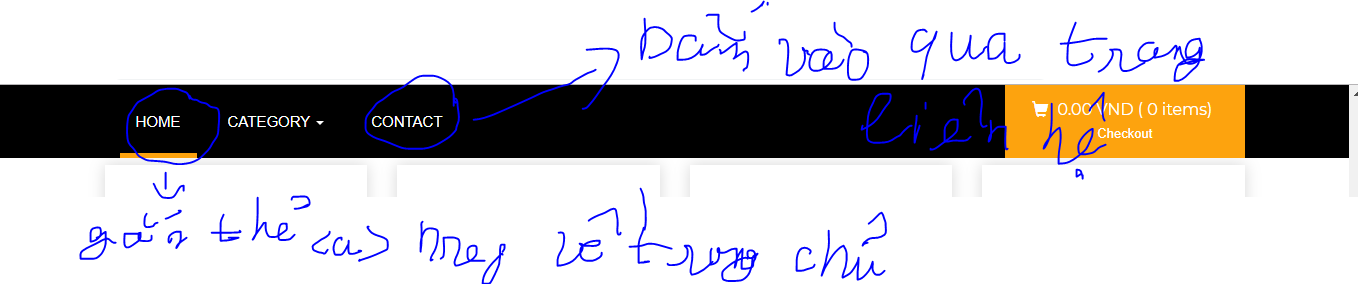 Dẫn vào qua trang
liên hệ
HOME CATEGORY CONTACT
0.00 VND ( 0 items)
Checkout
gắn thẻ <a> về trang chủ